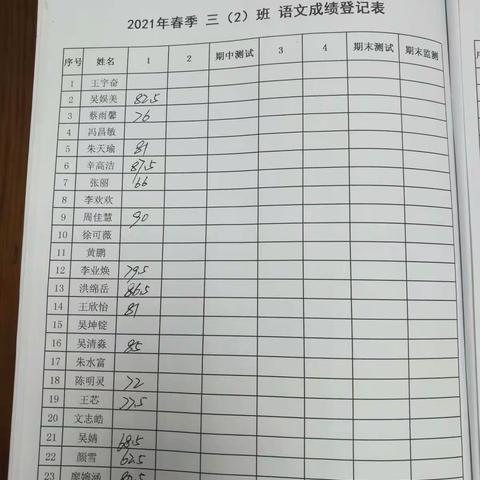 2021年春季 三（2）班 语文成绩登记表
序号 姓名 1 2 期中测试 3 4 期末测试 期末监测
1 王宇奋
2 吴娱美 82.5
3 蔡雨馨 76
4 冯昌敏
5 朱天瑜 81
6 辛高洁 87.5
7 张丽 66
8 李欢欢
9 周佳慧 90
10 徐可薇
11 黄鹏
12 李业焕 79.5
13 洪绵岳 86.5
14 王欣怡 81
15 吴坤锭
16 吴清淼 85
17 朱水富
18 陈明灵 72
19 王芯 77.5
20 文志皓
21 吴婧 68.5
22 颜雪 62.5
23